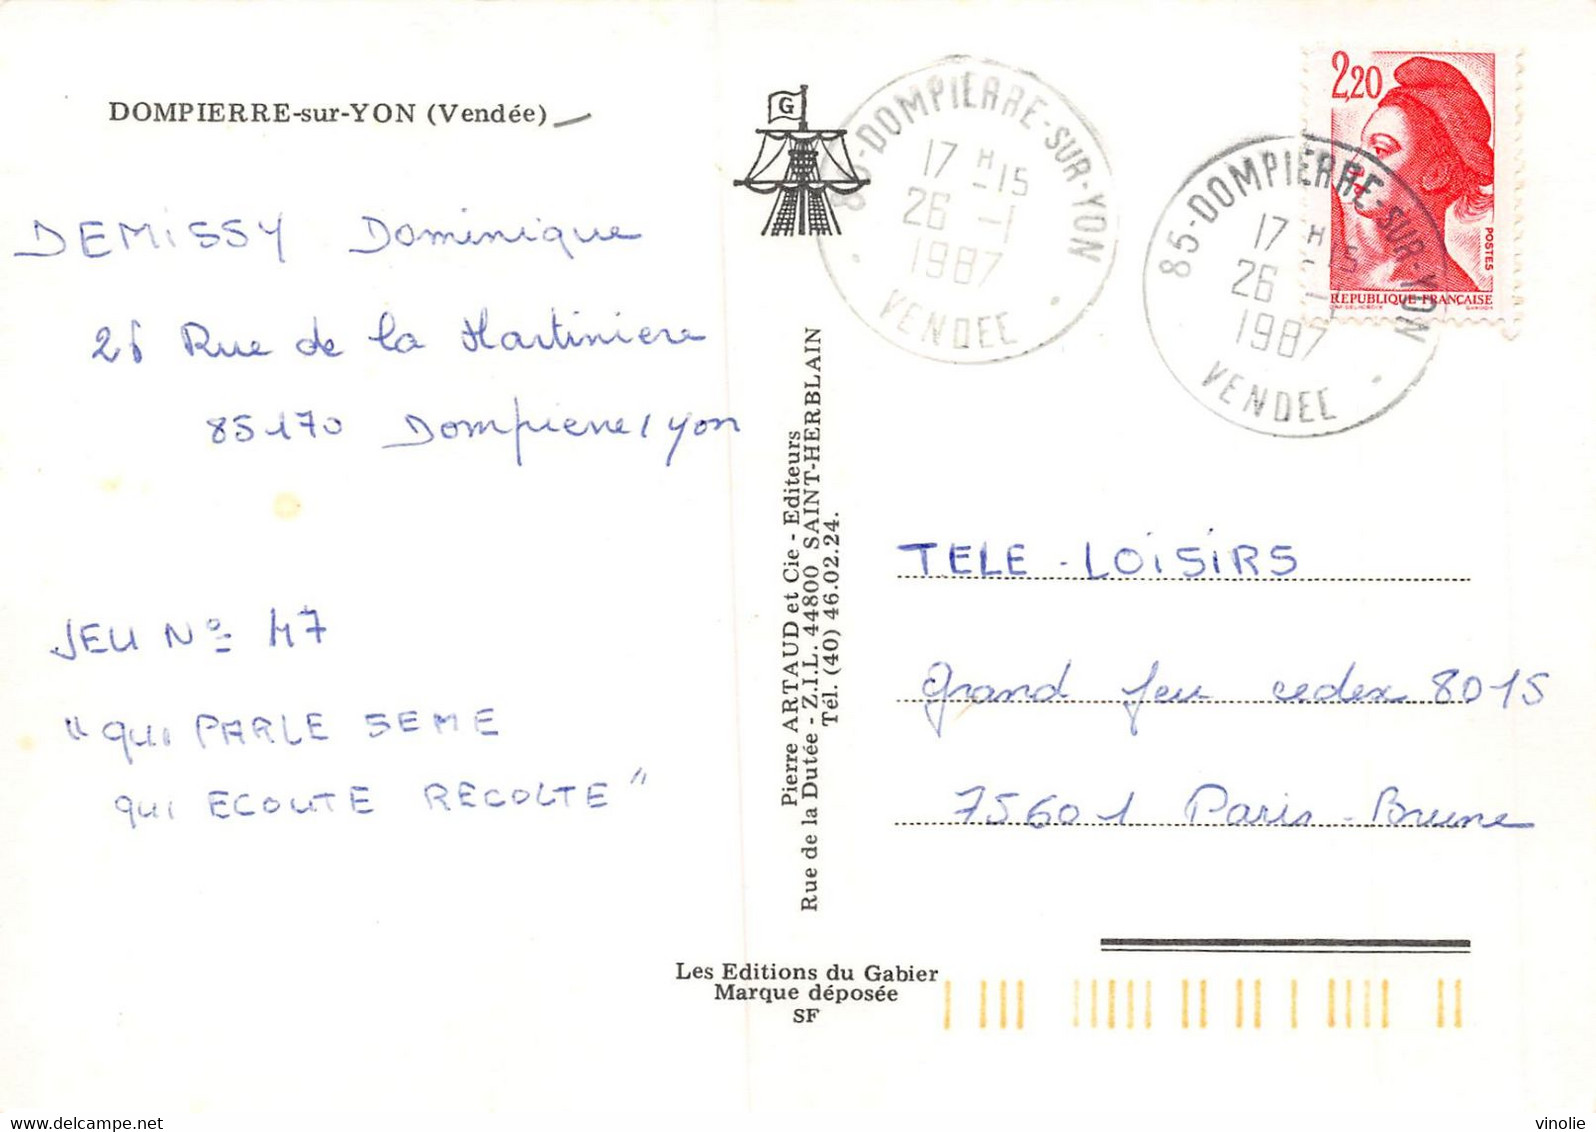 DOMPIERRE-sur-YON (Vendée)
DEMiSSY Dominique
26 Rue de la Martiniere
85170 Dompierre/Yon
JEU No 47
"qui PARLE SEME
qui ECOUTE RECOLTE"
G
Pierre ARTAUD et Cie - Editeurs
Rue de la Dutée - Z.I.L. 44800 SAINT-HERBLAIN
Tél. (40) 46.02.24.
Les Editions du Gabier
Marque déposée
SF
85-DOMPIERRE-SUR-YON
17 H 15
26 -1
1987
VENDEE
85-DOMPIERRE-SUR-YON
17 H 15
26 -1
1987
VENDEE
2,20
POSTES
REPUBLIQUE FRANÇAISE
TELE-LOiSiRS
grand jeu cedex 8015
75601 Paris-Brune
delcampe.net
vinolie